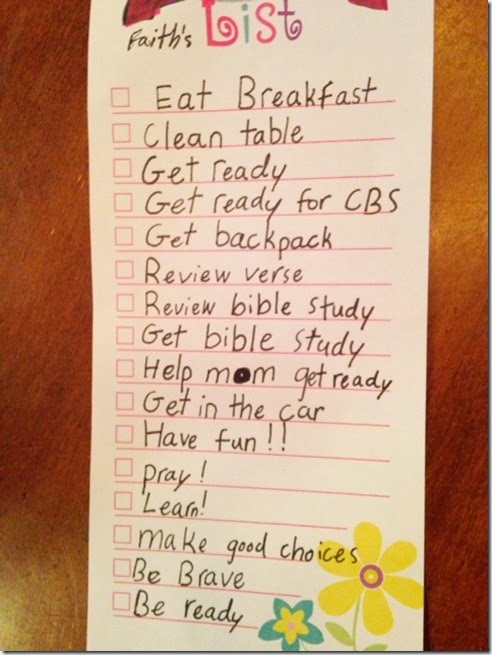 Faith's List
Eat Breakfast
Clean table
Get ready
Get ready for CBS
Get backpack
Review verse
Review bible study
Get bible study
Help mom get ready
Get in the car
Have fun!!
pray!
Learn!
make good choices
Be Brave
Be ready